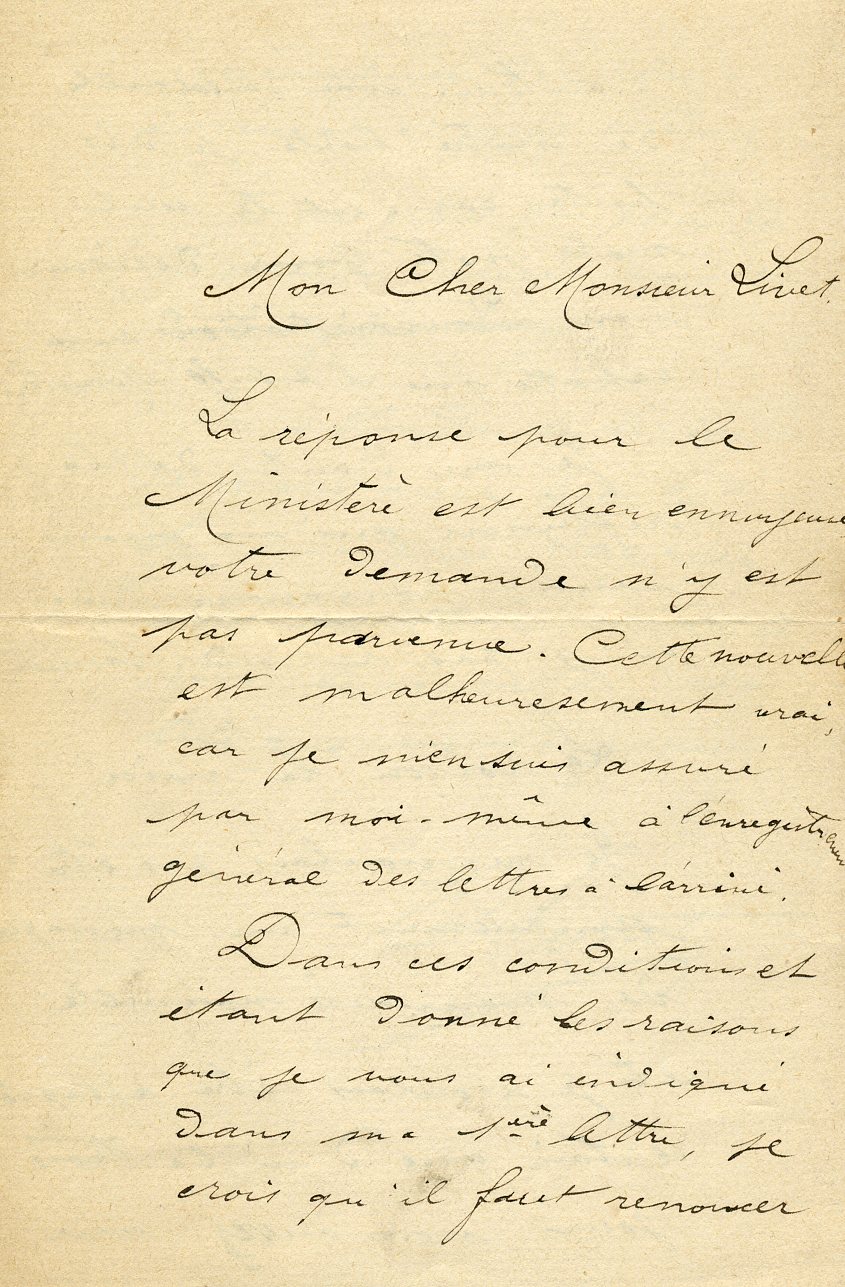 Mon Cher Monsieur Livet.
La réponse pour le
Ministère est bien ennuyeuse,
votre demande n'y est
pas parvenue. Cette nouvelle
est malheuresement vrai,
car je m'en suis assuré
par moi-même à l'enregistrement
général des lettres à l'arrivé.
Dans ces conditions et
étant donné les raisons
que je vous ai indiqué
dans ma 1ère lettre, je
crois qu'il faut renoncer